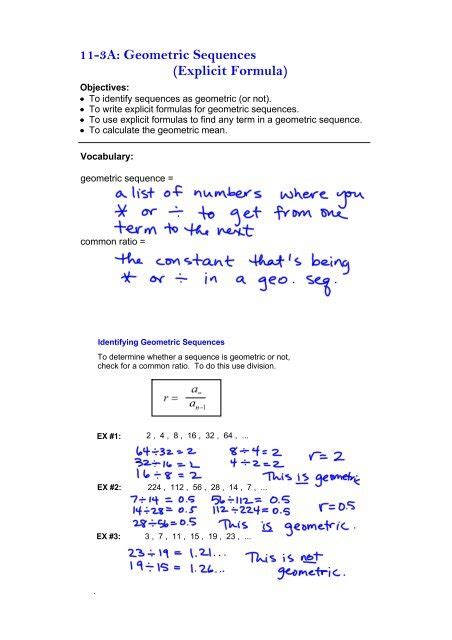 11-3A: Geometric Sequences
(Explicit Formula)
Objectives:
• To identify sequences as geometric (or not).
• To write explicit formulas for geometric sequences.
• To use explicit formulas to find any term in a geometric sequence.
• To calculate the geometric mean.
Vocabulary:
geometric sequence =
a list of numbers where you
* or ÷ to get from one
term to the next
common ratio =
the constant that's being
* or ÷ in a geo. seq.
Identifying Geometric Sequences
To determine whether a sequence is geometric or not,
check for a common ratio. To do this use division.
r = aₙ / aₙ₋₁
EX #1: 2 , 4 , 8 , 16 , 32 , 64 , ...
64÷32=2 8÷4=2 r=2
32÷16=2 4÷2=2
16÷8=2 This is geometric
EX #2: 224 , 112 , 56 , 28 , 14 , 7 , ...
7÷14=0.5 56÷112=0.5 r=0.5
14÷28=0.5 112÷224=0.5
28÷56=0.5 This is geometric.
EX #3: 3 , 7 , 11 , 15 , 19 , 23 , ...
23÷19=1.21... This is not
19÷15=1.26... geometric.